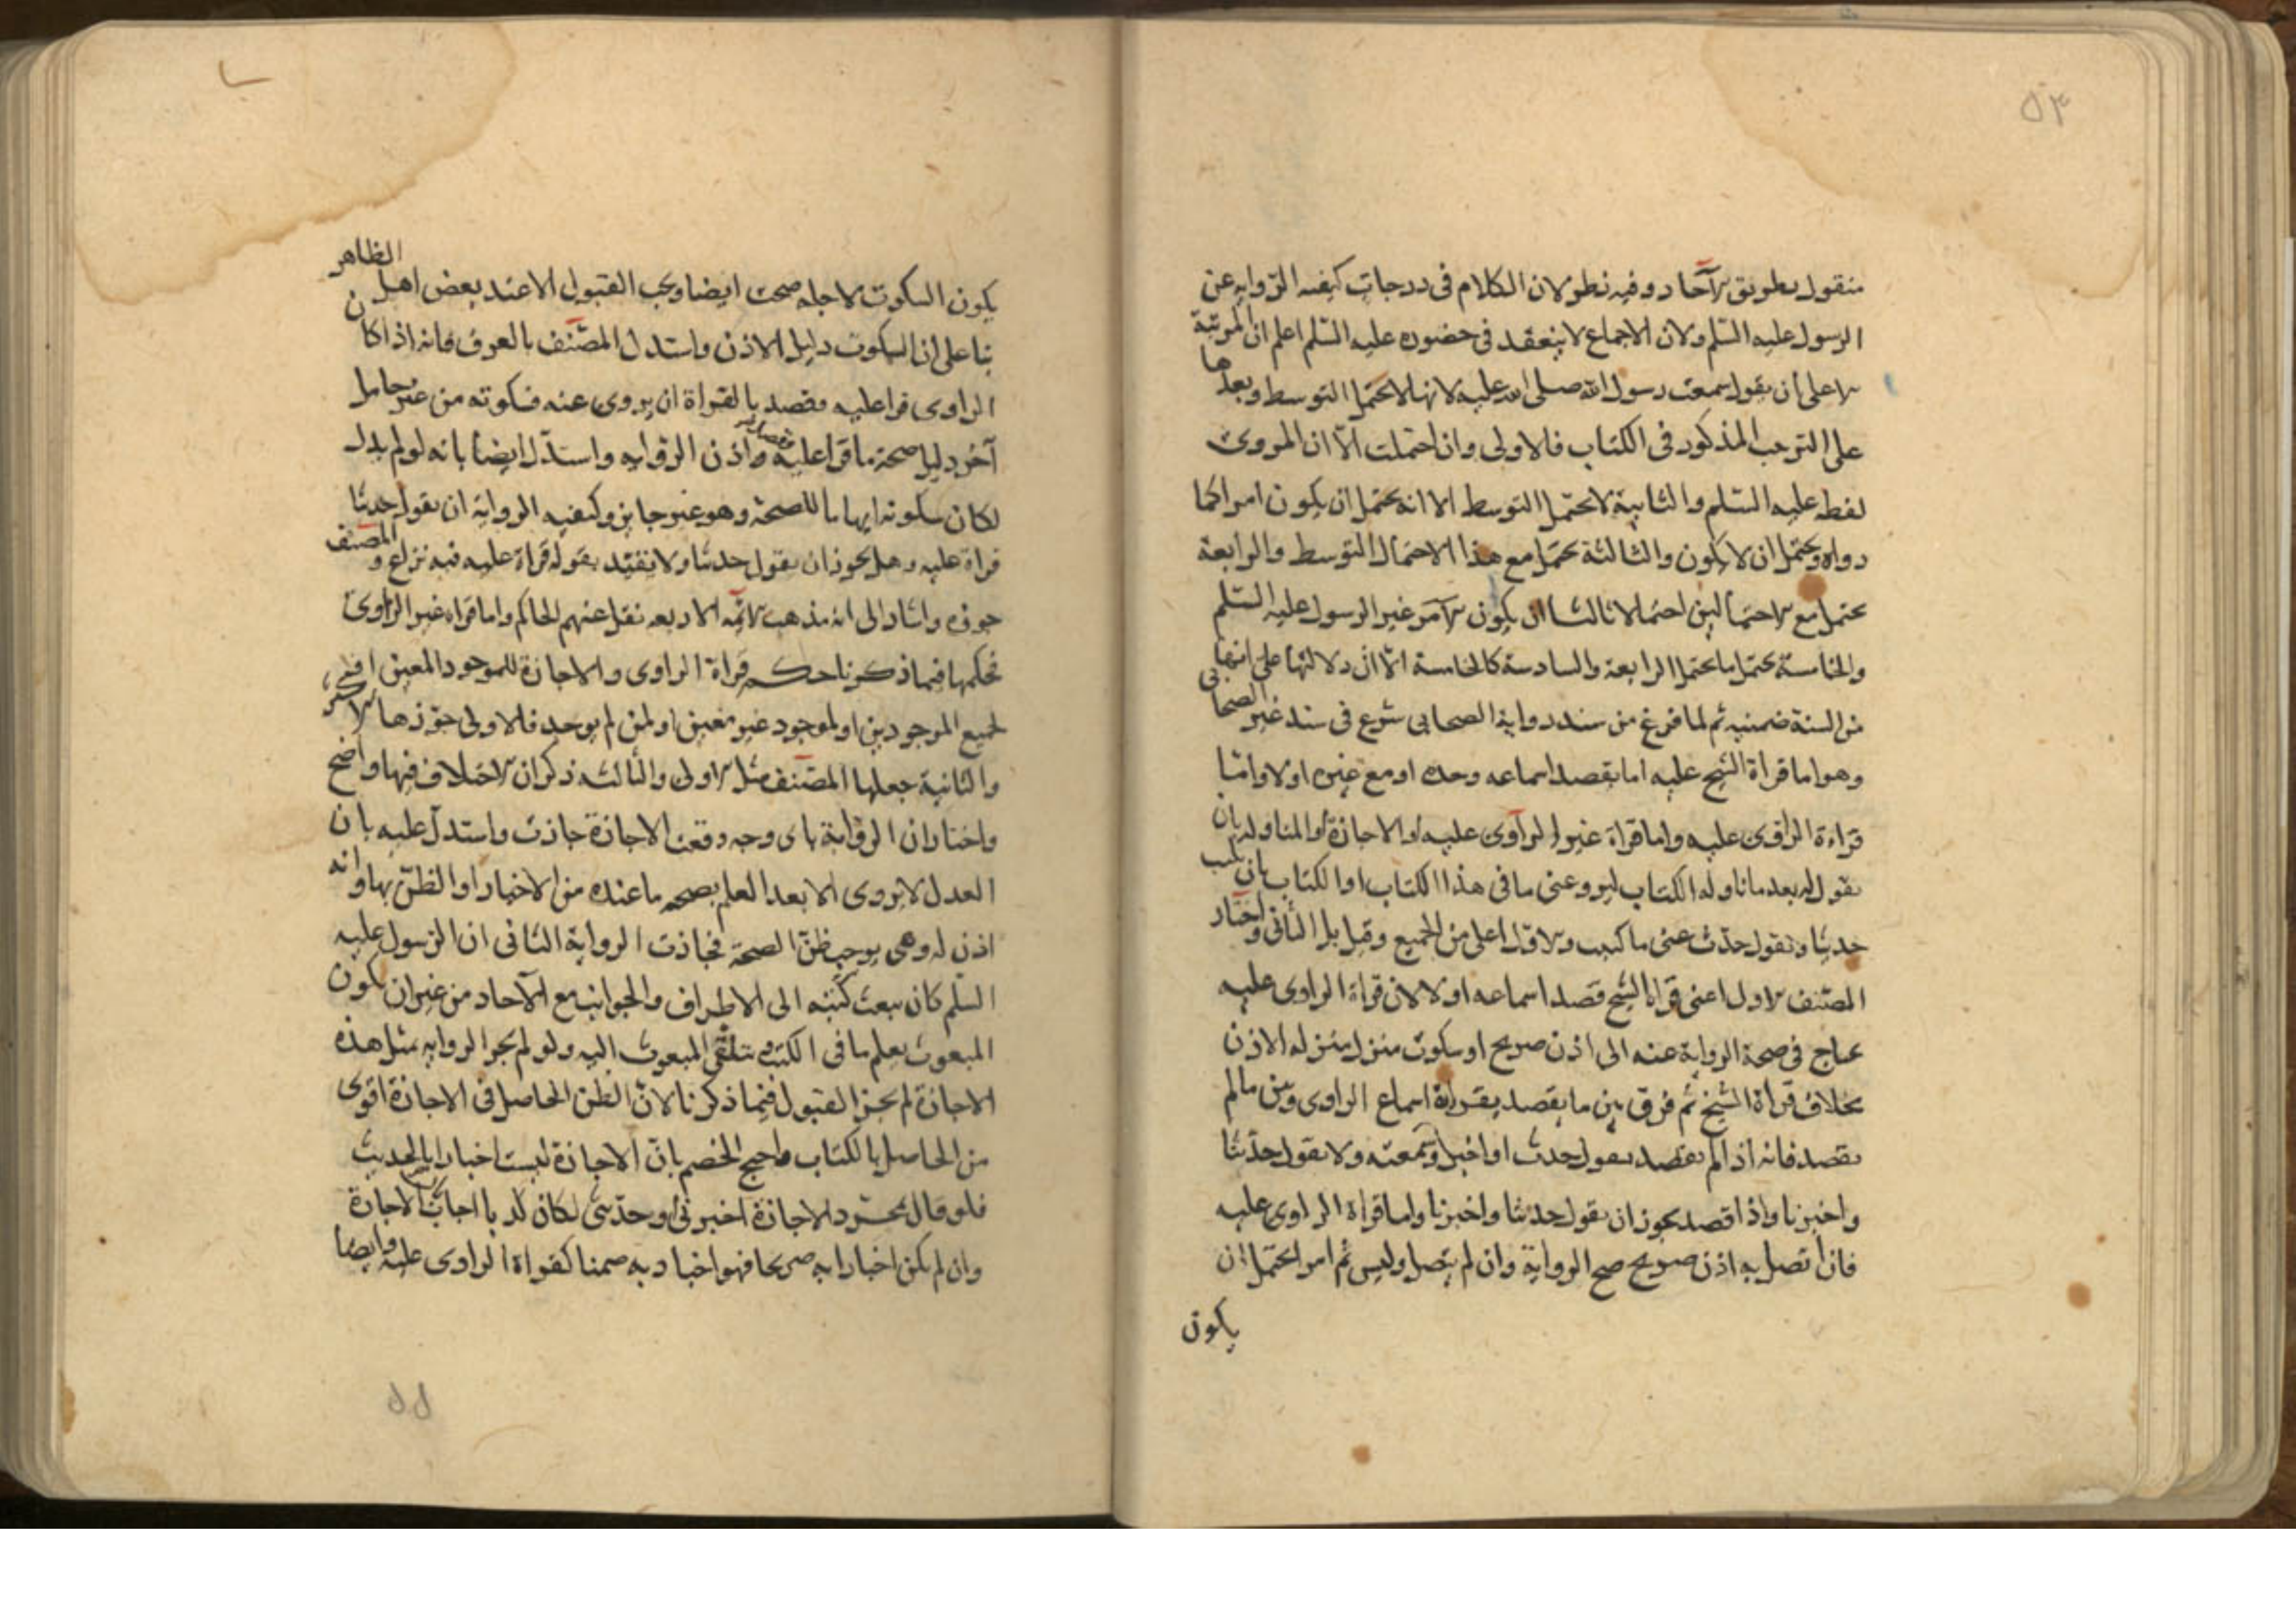 ٥٣
منقول بطريق الآحاد وفيه نظر لان الكلام فى درجات كيفيه الروايه عن
الرسول عليه السّلم ولان الاجماع لا ينعقد فى حضوره عليه السّلم اعلم ان المرتبة
الاعلى أن يقول سمعت رسول الله صلى الله عليه لانها لا تحتمل التوسط وبعدها
على الترتيب المذكور فى الكتاب فالاولى وان احتملت الّا ان المروى
لفظه عليه السّلم والثانية لا تحتمل التوسط الا انه يحتمل ان يكون امرا كما
رواه ويحتمل ان لا يكون والثالثة تحتمل مع هذا الاحتمال التوسط والرابعة
تحتمل مع الاحتمالين احتمالا ثالثا ان يكون الآمر غير الرسول عليه السّلم
والخامسة تحتمل ما تحتمل الرابعة والسادسة كالخامسة الّا انّ دلالتها على انها
من السنة ضمنيه ثم لما فرغ من سند رواية الصحابى شرع فى سند غير الصحابى
وهو اما قراة الشيخ عليه اما بقصد اسماعه وحده او مع غيره او لا واما
قراءة الراوى عليه واما قراة غير الراوى عليه او الاجازة او المناوله بان
يقول له بعد ما ناوله الكتاب ليرو عنى ما فى هذا الكتاب او الكتاب بان يكتب
حديثا ويقول حدّث عنى ما كتبت والاوّل اعلى من الجميع وقيل بل الثانى واختار
المصنف الاول اعنى قراة الشيخ قصد اسماعه او لا لان قراة الراوى عليه
يحتاج فى صحة الرواية عنه الى اذن صريح او سكوت منزل منزله الاذن
بخلاف قراة الشيخ ثم فرق بين ما يقصد بقراة اسماع الراوى وبين ما لم
يقصد فانه اذا لم يقصد يقول حدث او اخبر او سمعته ولا يقول حدّثنا
واخبرنا واذا قصد يجوز ان يقول حدثنا واخبرنا واما قراة الراوى عليه
فان اتصل به اذن صريح صح الرواية وان لم يتصل وليس ثم امر يحتمل ان
يكون
يكون السكوت لاجله صحت ايضا ويجب القبول الا عند بعض اهل الظاهر
بنا على ان السكوت دليل الاذن واستدل المصنّف بالعرف فانه اذا كان
الراوى قرا عليه وقصد بالقراة ان يروى عنه فسكوته من غير حامل
آخر دليل صحة ما قرا عليه واذن الرّوايه واستدّل ايضا بانه لو لم يدل
لكان سكوته ايهاما للصحة وهو غير جايز وكيفيه الرواية ان يقول حدثنا
قراة عليه وهل يجوز ان يقول حدثنا ولا يقيّد بقوله قراة عليه فيه نزاع والمصنف
جوزه واشار الى انه مذهب الائمة الاربعه نقل عنهم الحاكم واما قراه غير الراوى
فحكمها فيما ذكرنا حكم قراة الراوى والاجازة للموجود المعين او
لجميع الموجودين او لموجود غير معين او لمن لم يوجد فالاولى جوّزها الاكثر
والثانية جعلها المصنّف مثل الاولى والثالثه ذكر ان الاختلاف فيها واضح
واختار ان الرواية باى وجه وقعت الاجازة جازت واستدلّ عليه بان
العدل لا يروى الا بعد العلم بصحه ما عنده من الاخبار او الظنّ بها وانه
اذن له وهى يوجب ظنّ الصحة فجازت الرواية الثانى ان الرسول عليه
السلّم كان يبعث كتبه الى الاطراف والجوانب مع الآحاد من غير ان يكون
المبعوث يعلم ما فى الكتب و يتلقّى المبعوث اليه ولو لم يجز الروايه بمثل هذه
الاجازة لم يجز القبول فيما ذكرنا لانّ الظن الحاصل فى الاجازة اقوى
من الحاصل بالكتاب واحتج الخصم بانّ الاجازة ليست اخبارا بالحديث
فلو قال بمجرد الاجازة اخبرنى او حدّثنى لكان كذبا اجاب الاجازة
وان لم يكن اخبارا به صريحا فهو اخبار به ضمنا كقراة الراوى عليه وايضا